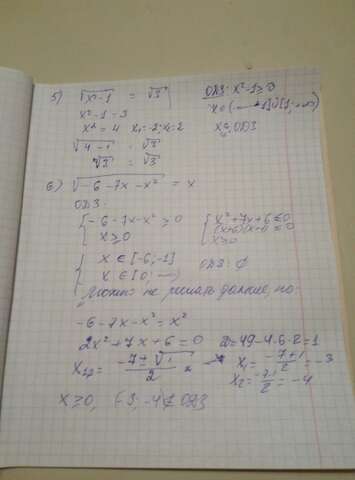 5) √(x²-1) = √3   ОДЗ: x²-1≥0
x²-1=3   x∈(-∞;-1]∪[1;+∞)
x²=4   x₁=-2; x₂=2
√(4-1) = √3
√3 = √3
6) √(-6-7x-x²) = x
ОДЗ:
{-6-7x-x²≥0   {x²+7x+6≤0
(x+6)(x+1)≤0
x≥0   x≥0
{x∈[-6;-1]
x∈[0;   ОДЗ: ∅
Можно не решать дальше, но:
-6-7x-x²=x²
2x²+7x+6=0   D=49-4·6·2=1
x₁,₂ = (-7±√1)/2   x₁=(-7+1)/2=-3
x₂=(-7-1)/2=-4
x≥0, (-3;-4)∉ОДЗ